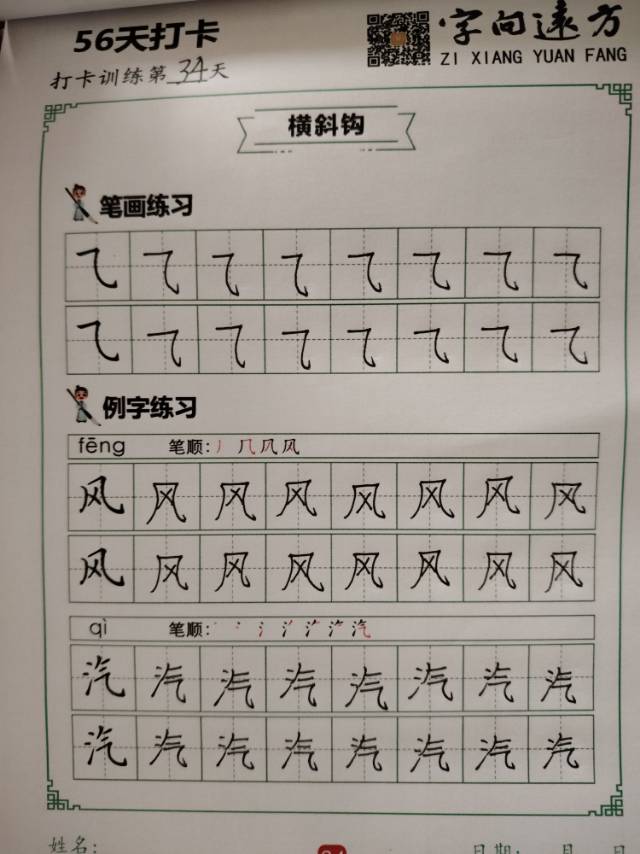 56天打卡
字向远方
ZI XIANG YUAN FANG
打卡训练第34天
横斜钩
笔画练习
⺄ ⺄ ⺄ ⺄ ⺄ ⺄ ⺄ ⺄
⺄ ⺄ ⺄ ⺄ ⺄ ⺄ ⺄ ⺄
例字练习
fēng 笔顺:
风 风 风 风 风 风 风 风
风 风 风 风 风 风 风 风
qì 笔顺:
汽 汽 汽 汽 汽 汽 汽 汽
汽 汽 汽 汽 汽 汽 汽 汽
姓名: 日期: 月 日